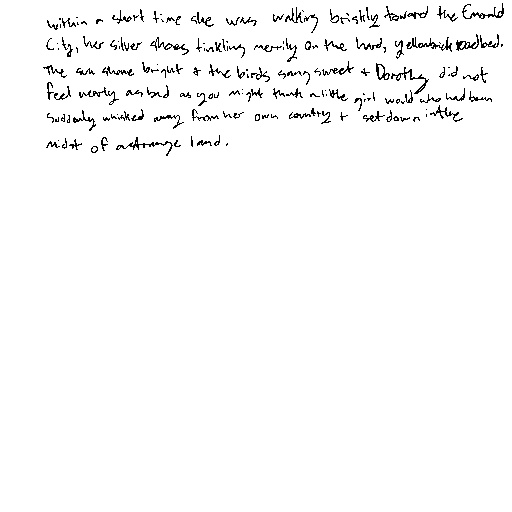 within a short time she was walking briskly toward the Emerald
City, her silver shoes tinkling merrily on the hard, yellow brick roadbed.
The sun shone bright + the birds sang sweet + Dorothy did not
feel nearly as bad as you might think a little girl would who had been
suddenly whisked away from her own country + set down in the
midst of a strange land.